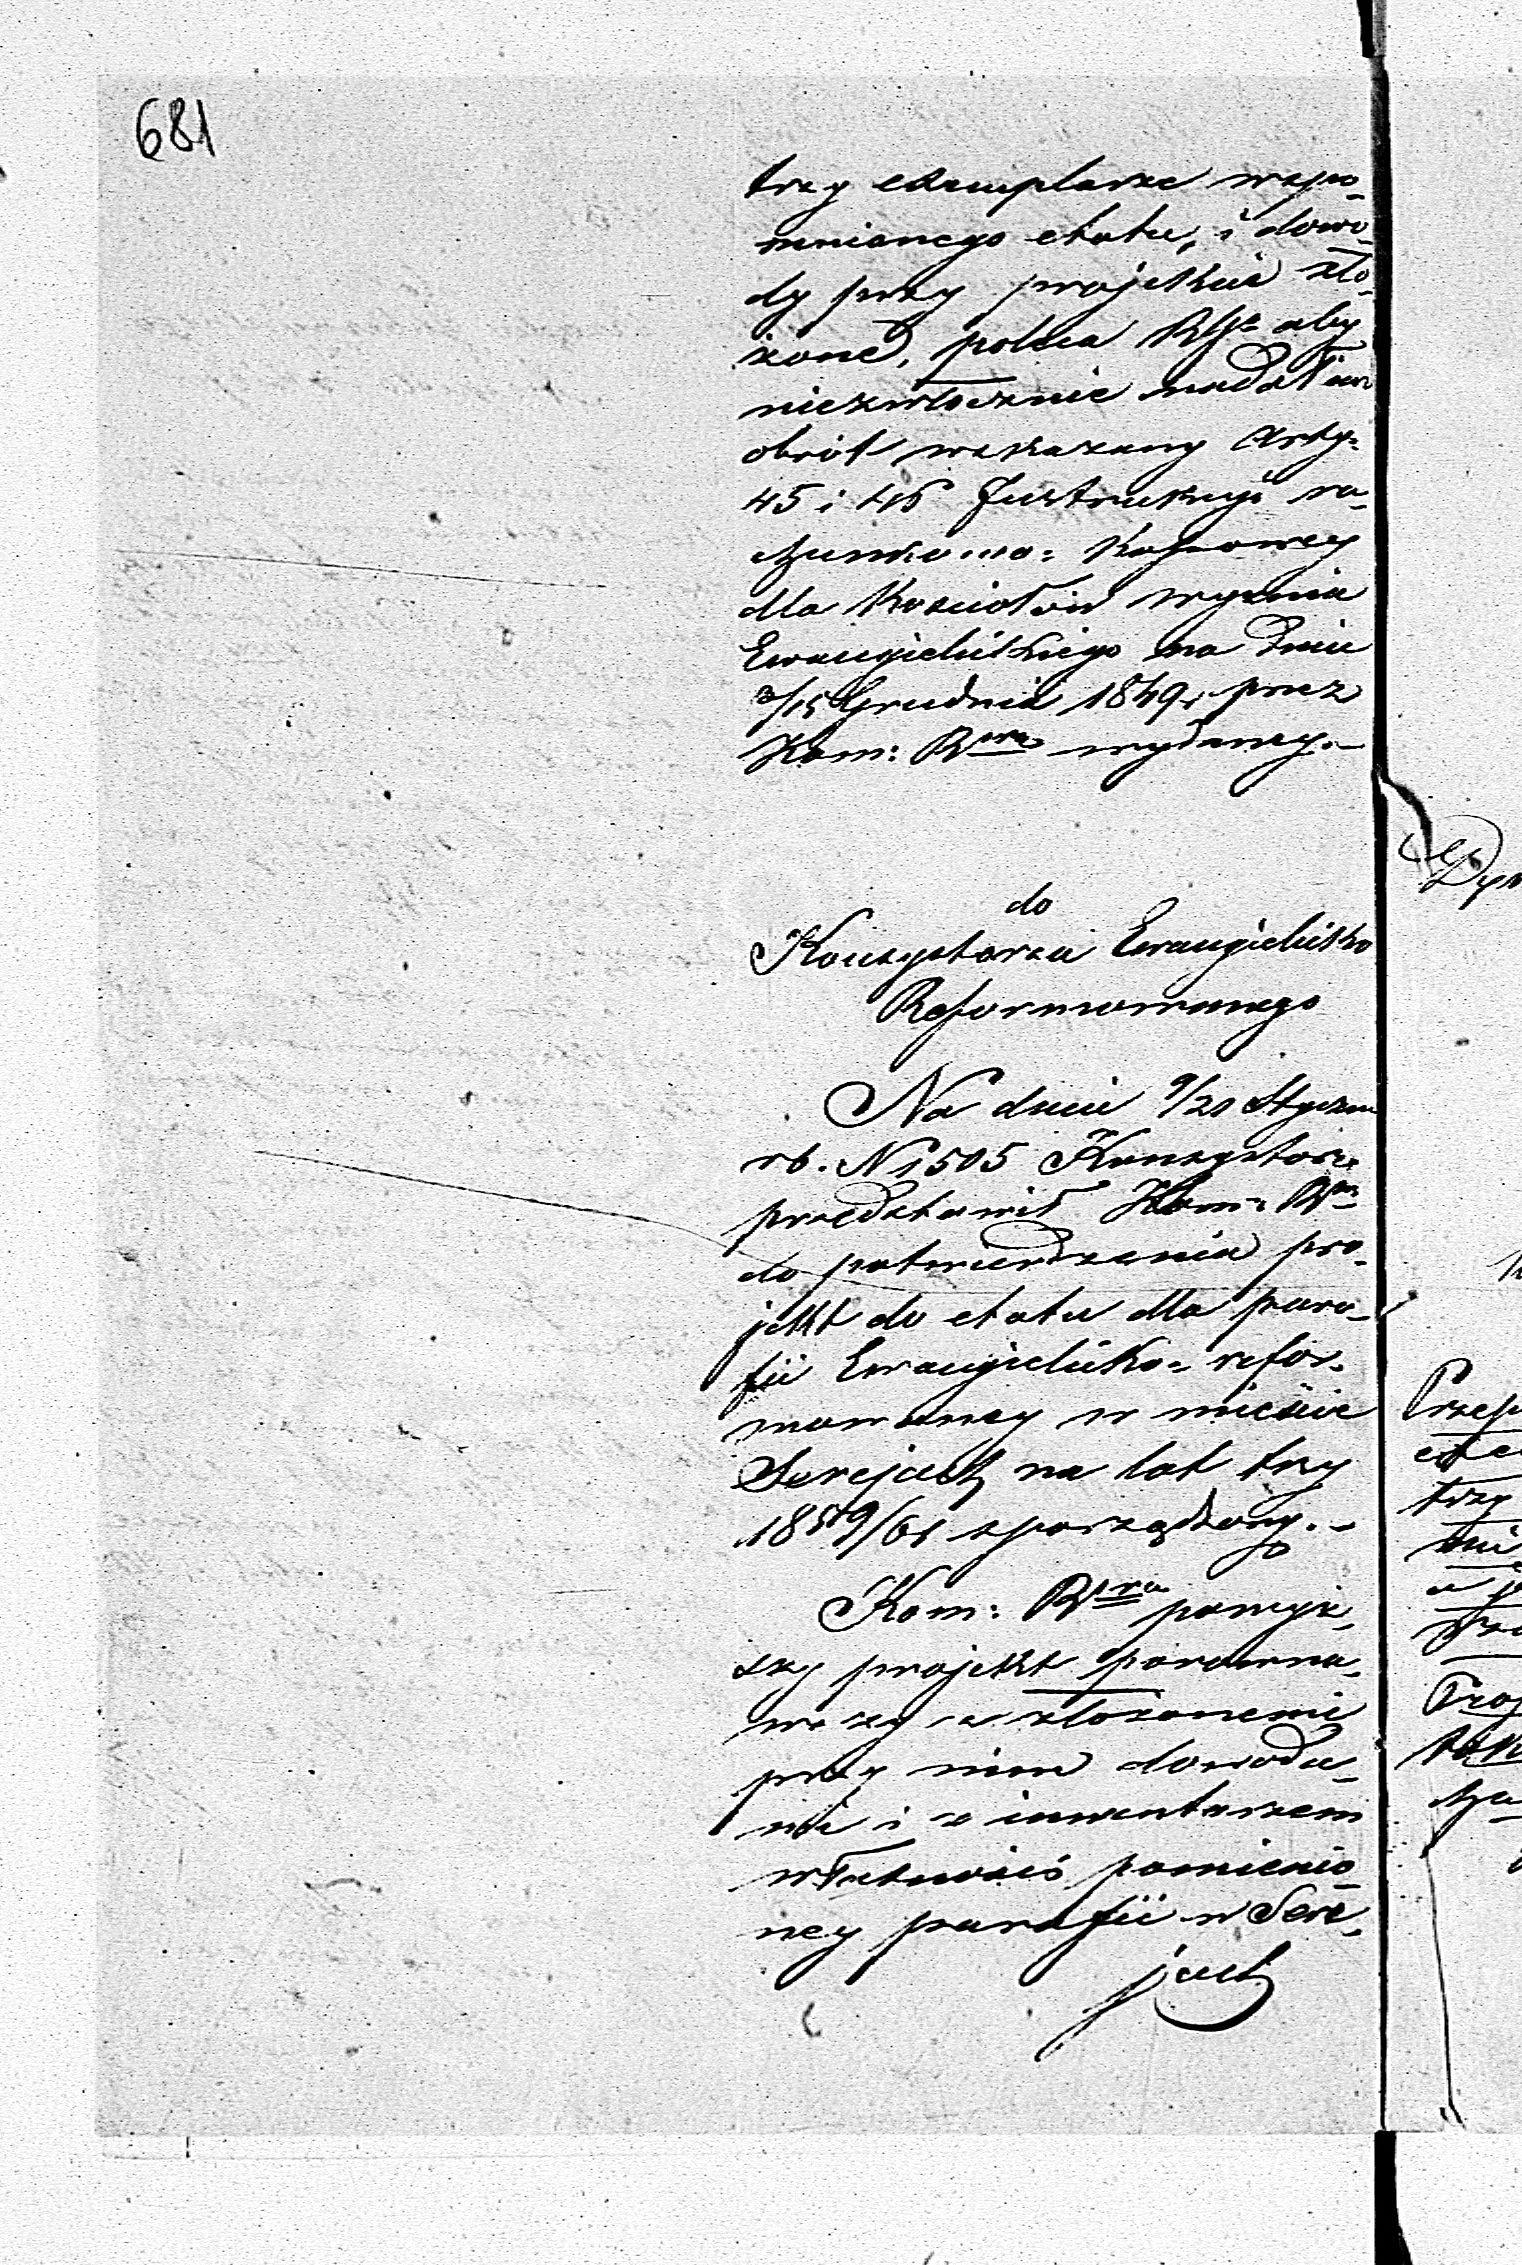 681
trzy exemplarze wspo-
mnianego etatu, i dowo-
dy przy projekcie zło-
żone, poleca aby
niezwłocznie nadał im
obrót wskazany Arty:
45 i 46 Instrukcyi ra-
chunkowo: Kassowey
dla Kościołów wyznia
Ewangielickiego na dniu
3/15 Grudnia 1849 r przez
Kom: Rząa wydaney.-
do
Konsystorza Ewangielicko
Reformowanego
Na dniu 9/21 Stycznia
rb. N 1505 Konsystorz
przedstawił Kom: 
do potwierdzenia pro-
jekt do etatu dla para-
fii Ewangielicko= refor-
mowaney w mieście
Serejach na lat trzy
1859/61 sporządzony.-
Kom: powyż-
szy projekt porówna-
wszy z złożonemi
przy nim dowoda-
mi i z inwentarzem
własności pomienio-
ney parafii w Sere-
jach